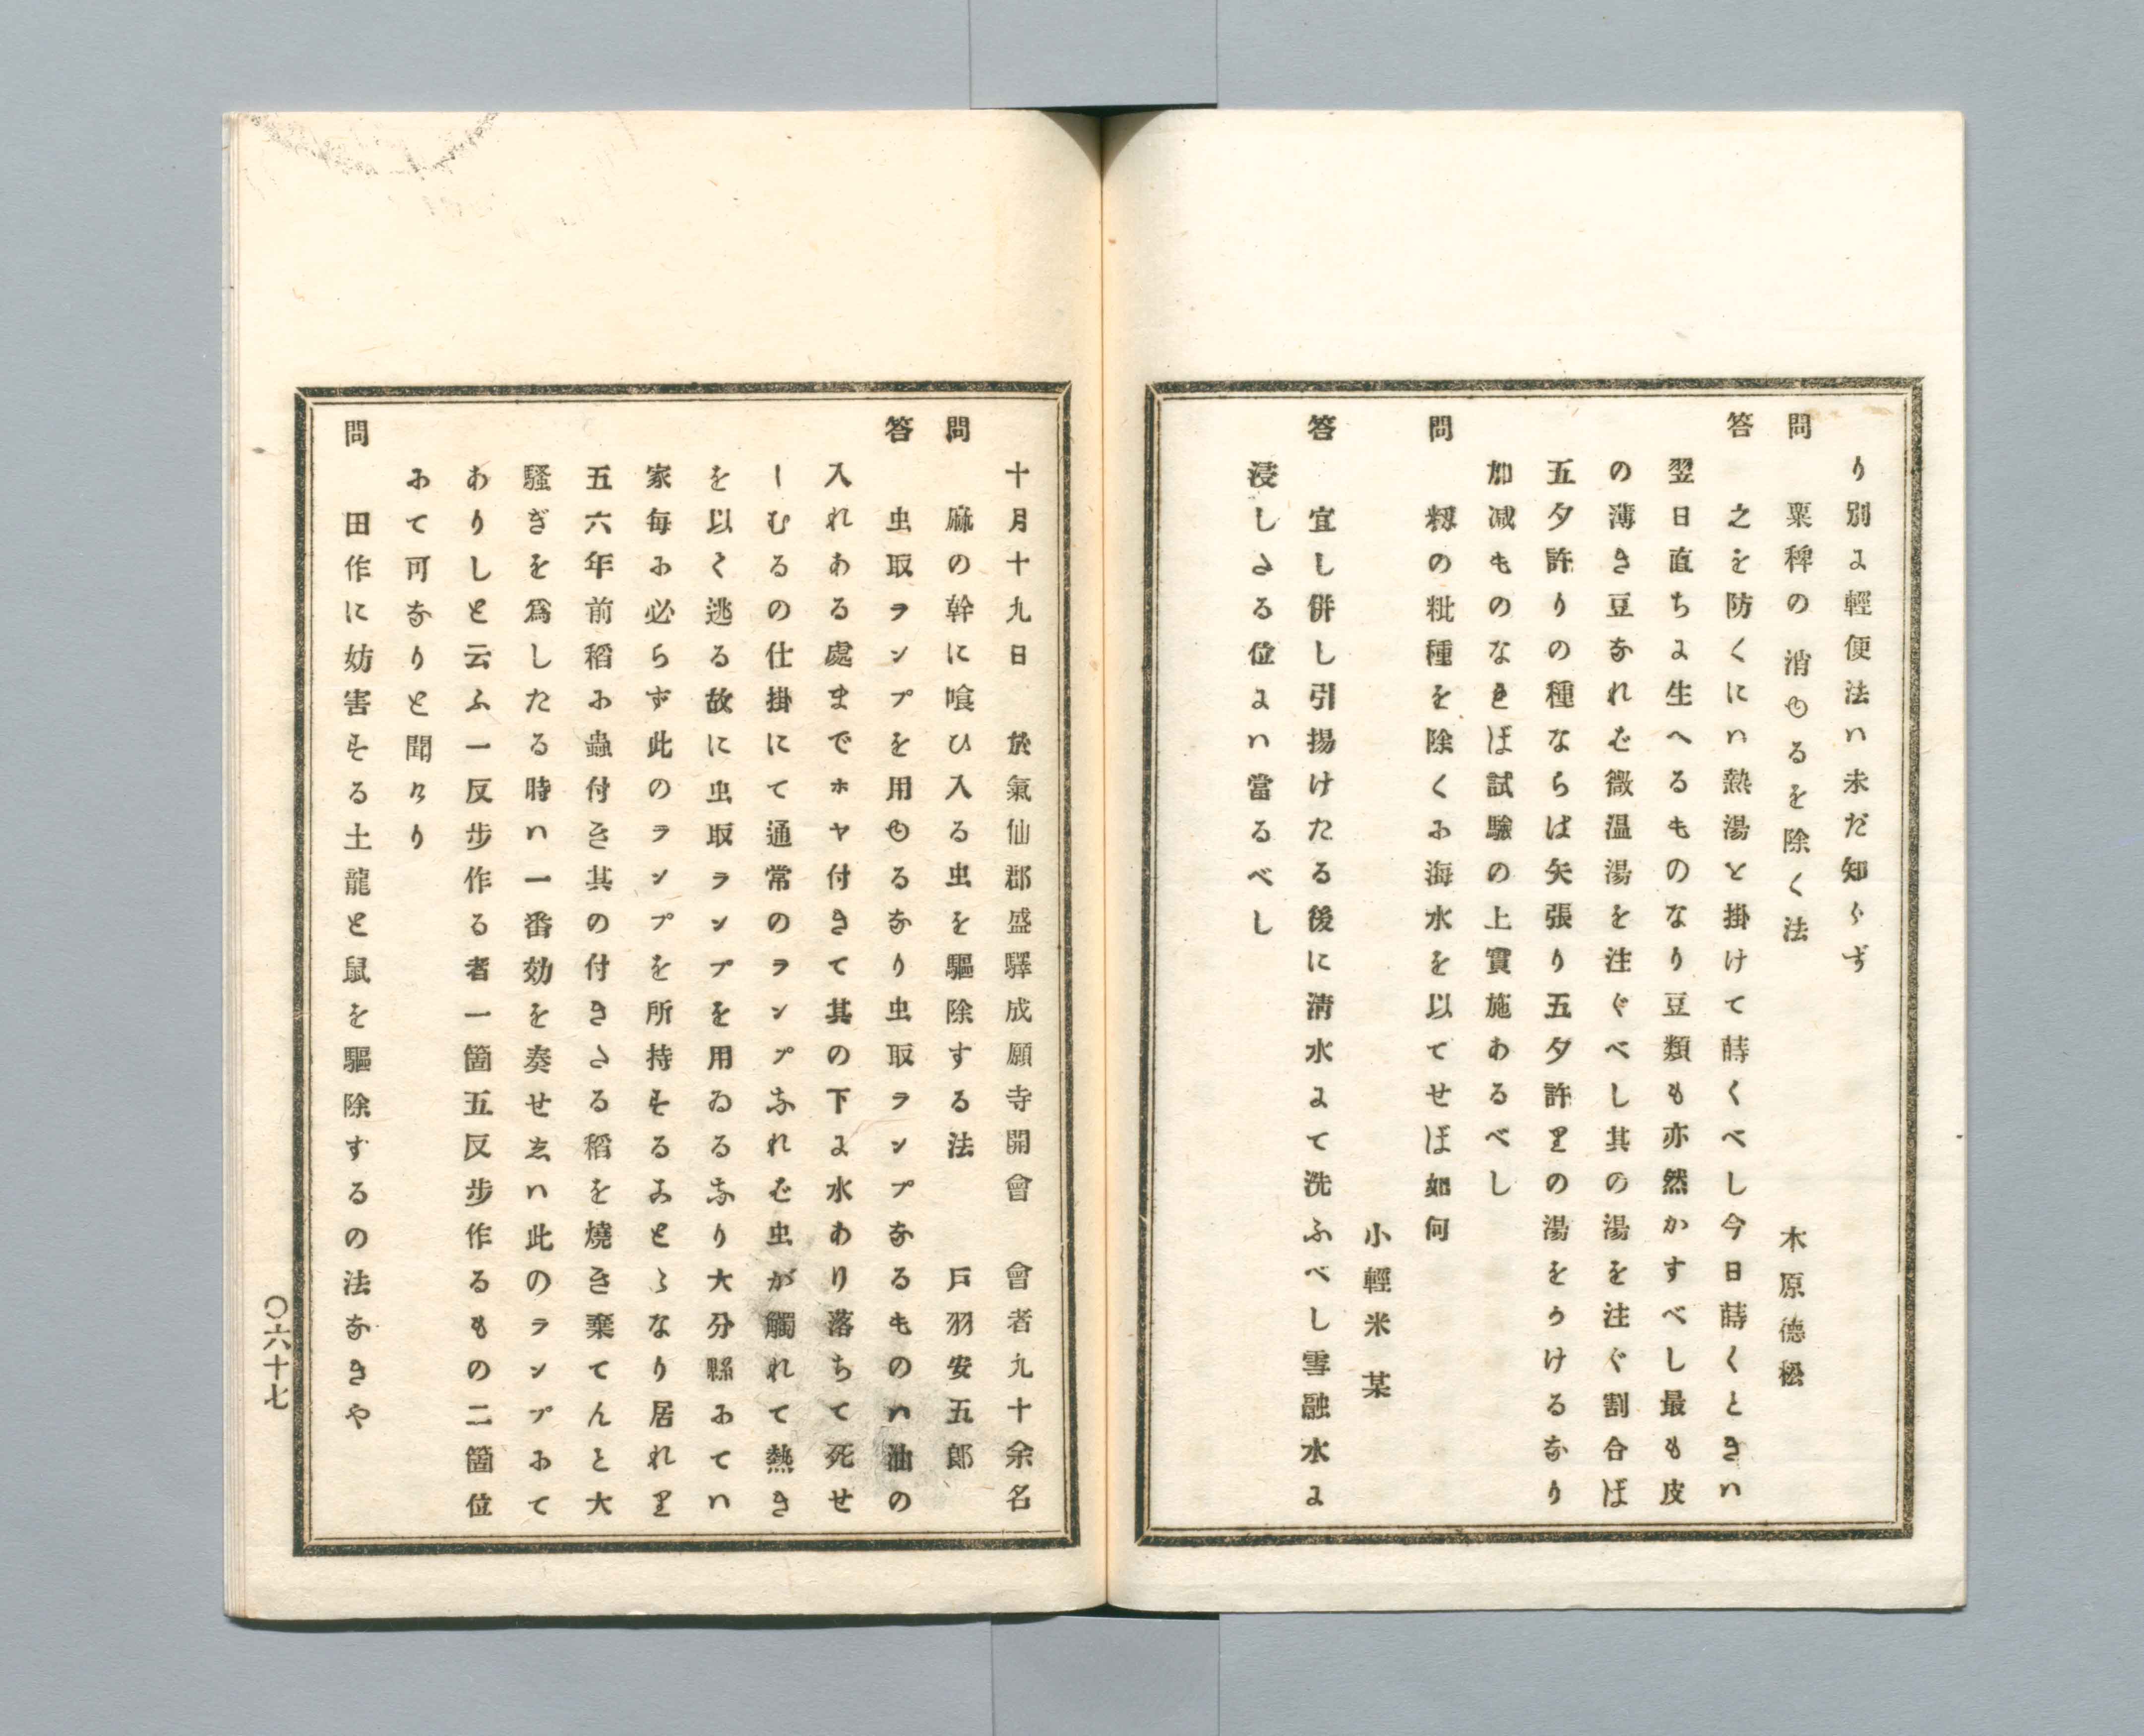 り別に輕便法ハ未だ知らず
問　粟稗の消ゆるを除く法　木原德松
答　之を防くにハ熱湯と掛けて蒔くべし今日蒔くときハ
翌日直ちに生へるものなり豆類も亦然かすべし最も皮
の薄き豆なれど微温湯を注ぐべし其の湯を注ぐ割合ば
五夕許りの種ならば矢張り五夕許りの湯をうけるなり
加减ものなれば試驗の上實施あるべし
問　籾の粃種を除くに海水を以てせば如何
小輕米　某
答　宜し併し引揚けたる後に淸水にて洗ふべし雪融水に
浸したる位にハ當るべし
十月十九日　於氣仙郡盛驛成願寺開會　會者九十余名
問　麻の幹に喰ひ入る虫を驅除する法　戸羽安五郎
答　虫取ランプを用ゆるなり虫取ランプなるものハ油の
入れある處までホヤ付きて其の下に水あり落ちて死せ
しむるの仕掛にて通常のランプなれど虫が觸れて熱き
を以く逃る故に虫取ランプを用ゐるなり大分縣にてハ
家每に必らず此のランプを所持することゝなり居れり
五六年前稻に蟲付き其の付きたる稻を燒き棄てんと大
騷ぎを爲したる時ハ一番効を奏せゑハ此のランプにて
ありしと云ふ一反步作る者一箇五反步作るもの二箇位
にて可なりと聞けり
問　田作に妨害する土龍と鼠を驅除するの法なきや
〇六十七